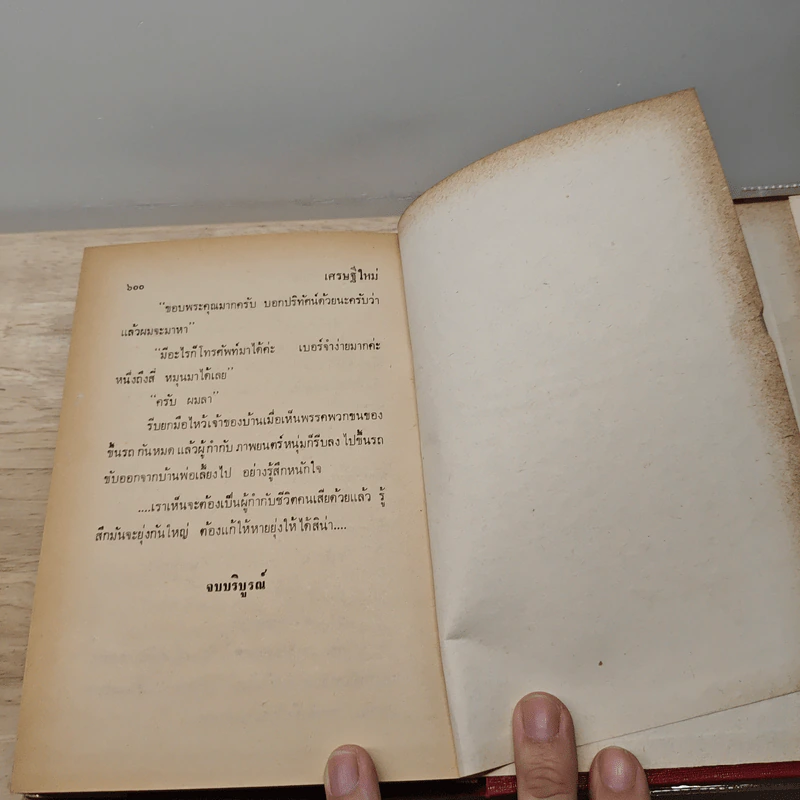 ๖๐๐ เศรษฐีใหม่
"ขอบพระคุณมากครับ บอกปริทัศน์ด้วยนะครับว่า
แล้วผมจะมาหา"
"มีอะไรก็โทรศัพท์มาได้ค่ะ เบอร์จำง่ายมากค่ะ
หนึ่งถึงสี่ หมุนมาได้เลย"
"ครับ ผมลา"
รีบยกมือไหว้เจ้าของบ้านเมื่อเห็นพรรคพวกขนของ
ขึ้นรถกันหมด แล้วผู้กำกับภาพยนตร์หนุ่มก็รีบลงไปขึ้นรถ
ขับออกจากบ้านพ่อเลี้ยงไป อย่างรู้สึกหนักใจ
....เราเห็นจะต้องเป็นผู้กำกับชีวิตคนเสียด้วยแล้ว รู้
สึกมันจะยุ่งกันใหญ่ ต้องแก้ให้หายยุ่งให้ได้สิน่า....
จบบริบูรณ์